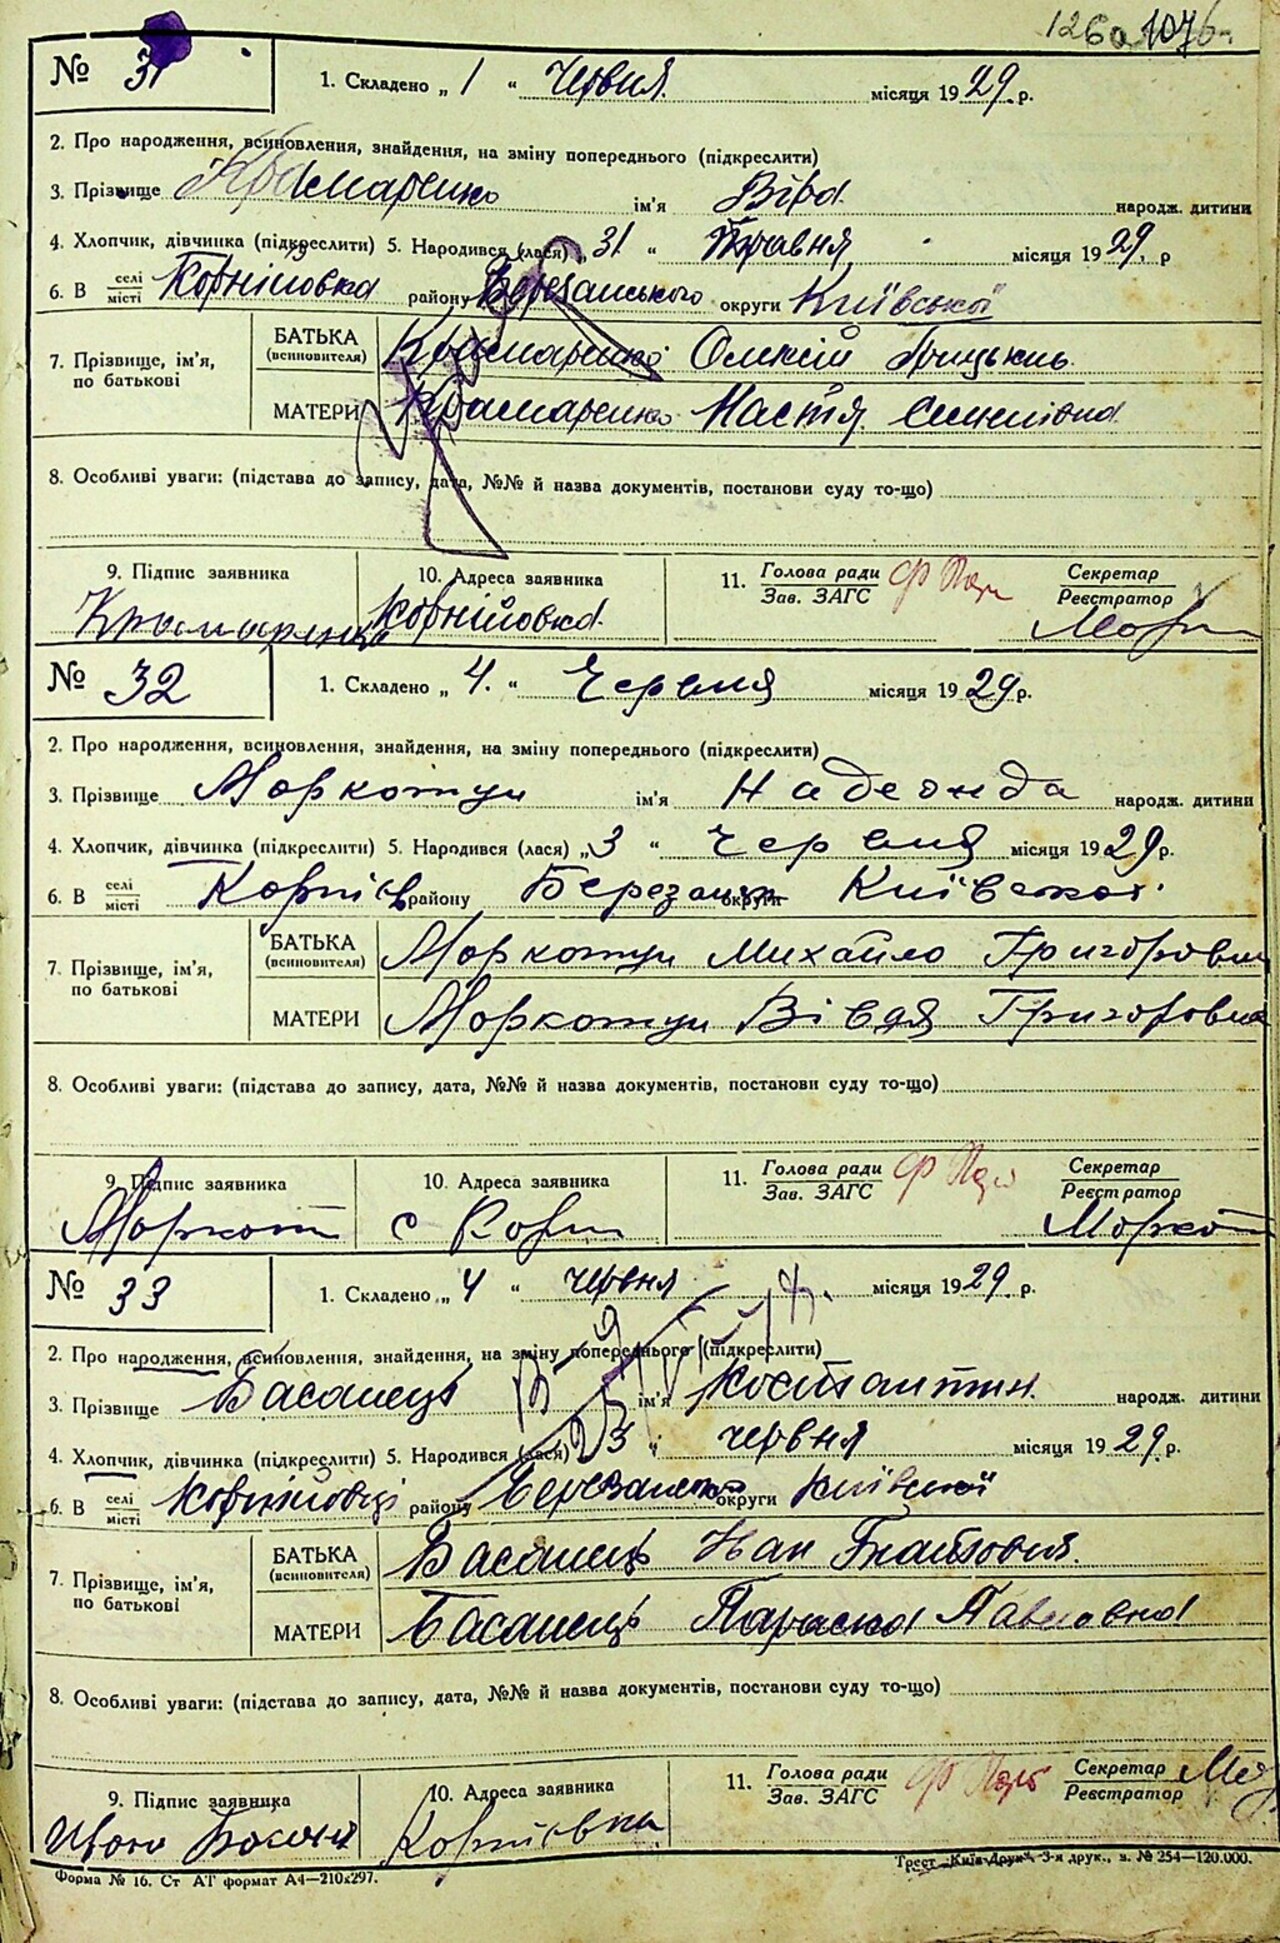 № 31
1. Складено „ 1 “ Червня місяця 1929 р.
2. Про народження, всиновлення, знайдення, на зміну попереднього (підкреслити)
3. Прізвище Крамаренко ім'я Віра народж. дитини
4. Хлопчик, дівчинка (підкреслити) 5. Народився (лася) „ 31 “ Травня місяця 1929 р
6. В селі/місті Корніловка району Березанського округи Київської
7. Прізвище, ім'я, по батькові
БАТЬКА (всиновителя) Крамаренко Олексій
МАТЕРИ Крамаренко Настя
8. Особливі уваги: (підстава до запису, дата, №№ й назва документів, постанови суду то-що)
9. Підпис заявника 10. Адреса заявника 11. Голова ради/Зав. ЗАГС Секретар/Реєстратор
Крамаренко
№ 32
1. Складено „ 4. “ Червня місяця 1929 р.
2. Про народження, всиновлення, знайдення, на зміну попереднього (підкреслити)
3. Прізвище Моркотун ім'я народж. дитини
4. Хлопчик, дівчинка (підкреслити) 5. Народився (лася) „ 3 “ Червня місяця 1929 р.
6. В селі/місті району Березанськ округи
7. Прізвище, ім'я, по батькові
БАТЬКА (всиновителя) Моркотун Михайло Григорович
МАТЕРИ Моркотун Вівдя Григоровна
8. Особливі уваги: (підстава до запису, дата, №№ й назва документів, постанови суду то-що)
9. Підпис заявника 10. Адреса заявника 11. Голова ради/Зав. ЗАГС Секретар/Реєстратор
№ 33
1. Складено „ 4 “ червня місяця 1929 р.
2. Про народження, всиновлення, знайдення, на зміну попереднього (підкреслити)
3. Прізвище Басанець ім'я Костантин. народж. дитини
4. Хлопчик, дівчинка (підкреслити) 5. Народився (лася) „ 3 “ червня місяця 1929 р.
6. В селі/місті району округи Київської
7. Прізвище, ім'я, по батькові
БАТЬКА (всиновителя) Басанець Іван Гнатович.
МАТЕРИ Басанець Параска Павловна
8. Особливі уваги: (підстава до запису, дата, №№ й назва документів, постанови суду то-що)
9. Підпис заявника 10. Адреса заявника 11. Голова ради/Зав. ЗАГС Секретар/Реєстратор
Форма № 16. Ст АТ формат А4—210х297.
Трест „Київ-Друк“, 3-я друк., з. № 254—120.000.